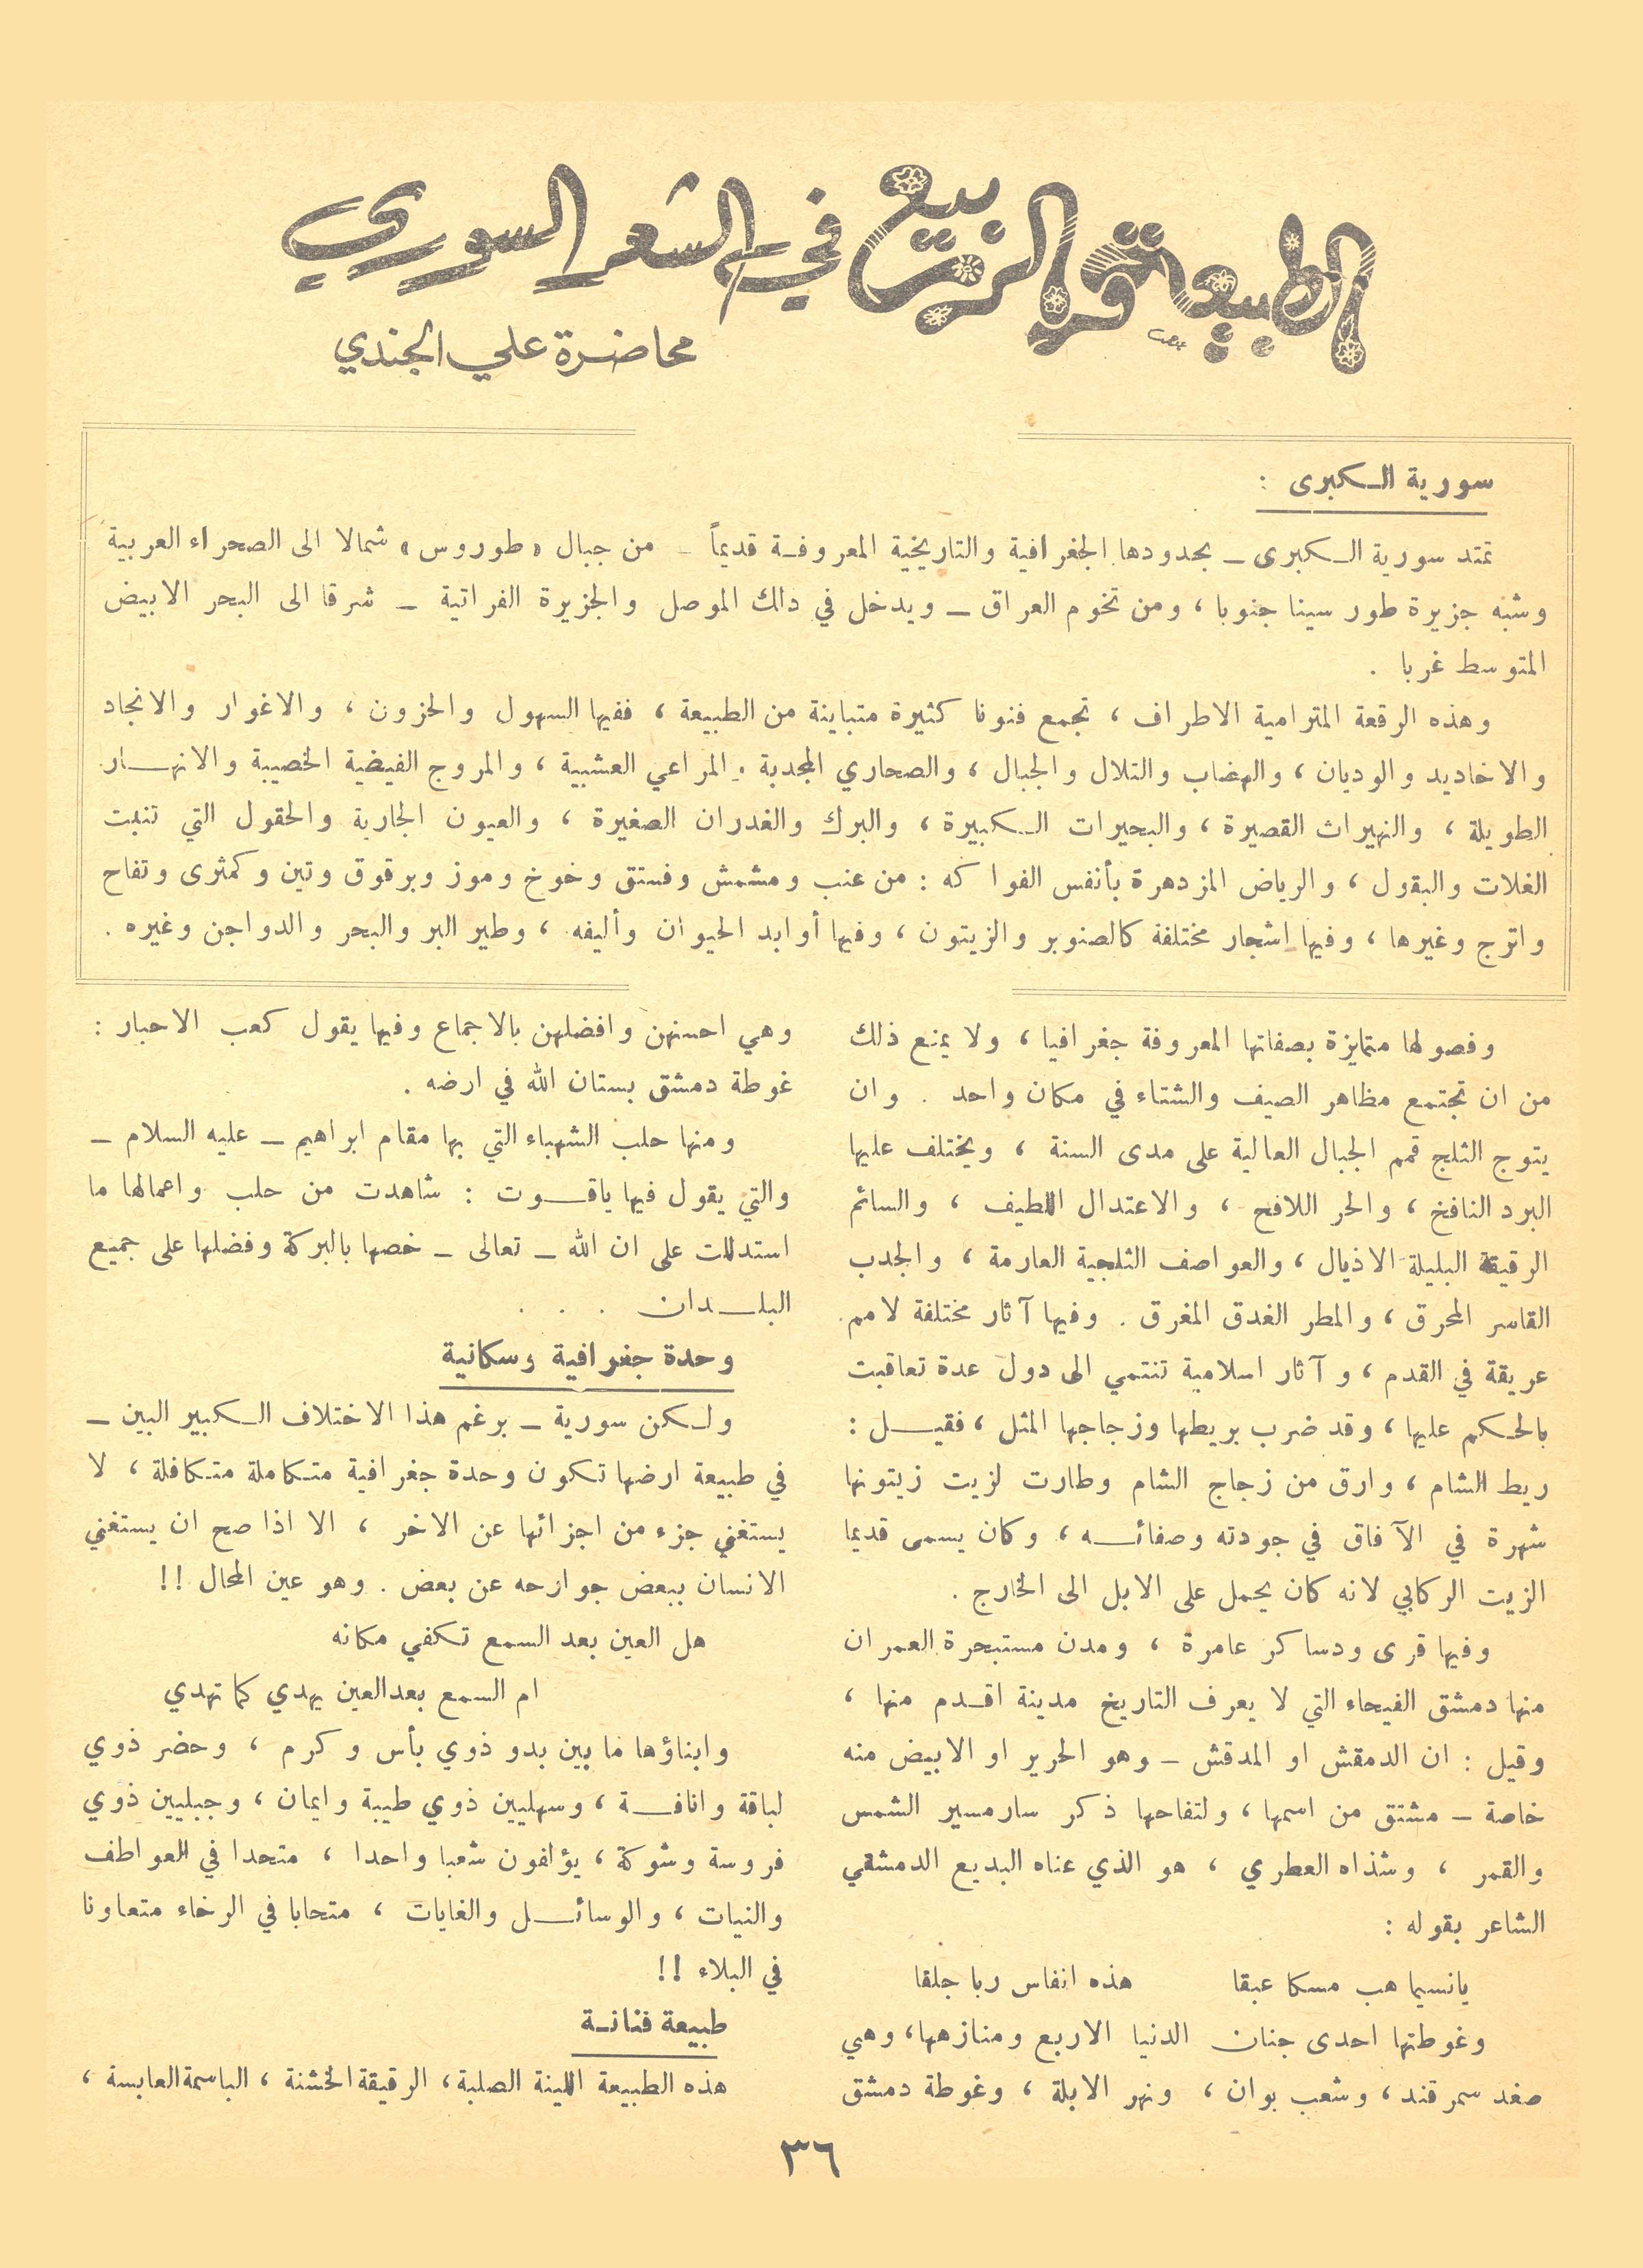 الطبيعة والربيع في الشعر السوري
محاضرة علي الجندي
سورية الكبرى :
تمتد سورية الكبرى – بحدودها الجغرافية والتاريخية المعروفة قديماً – من جبال «طوروس» شمالا الى الصحراء العربية
وشبه جزيرة طور سينا جنوبا ، ومن تخوم العراق – ويدخل في ذلك الموصل والجزيرة الفراتية – شرقا الى البحر الابيض
المتوسط غربا .
وهذه الرقعة المترامية الاطراف ، تجمع فنونا كثيرة متباينة من الطبيعة ، ففيها السهول والحزون ، والاغوار والانجاد
والاخاديد والوديان ، والهضاب والتلال والجبال ، والصحاري المجدبة والمراعي العشبية ، والمروج الفيضية الخصيبة والانهار
الطويلة ، والنهيرات القصيرة ، والبحيرات الكبيرة ، والبرك والغدران الصغيرة ، والعيون الجارية والحقول التي تنبت
الغلات والبقول ، والرياض المزدهرة بأنفس الفواكه : من عنب ومشمش وفستق وخوخ وموز وبرقوق وتين وكمثرى وتفاح
واترج وغيرها ، وفيها اشجار مختلفة كالصنوبر والزيتون ، وفيها أوابد الحيوان وأليفه ، وطير البر والبحر والدواجن وغيره .
وفصولها متمايزة بصفاتها المعروفة جغرافيا ، ولا يمنع ذلك
من ان تجتمع مظاهر الصيف والشتاء في مكان واحد . وان
يتوج الثلج قمم الجبال العالية على مدى السنة ، ويختلف عليها
البرد النافخ ، والحر اللافح ، والاعتدال اللطيف ، والسائم
الرقيقة البليلة الاذيال ، والعواصف الثلجية العارمة ، والجدب
القاسر المحرق ، والمطر الغدق المغرق . وفيها آثار مختلفة لامم
عريقة في القدم ، وآثار اسلامية تنتمي الى دول عدة تعاقبت
بالحكم عليها ، وقد ضرب بريطها وزجاجها المثل ، فقيل :
ريط الشام ، وارق من زجاج الشام وطارت لزيت زيتونها
شهرة في الآفاق في جودته وصفائه ، وكان يسمى قديما
الزيت الركابي لانه كان يحمل على الابل الى الخارج .
وفيها قرى ودساكر عامرة ، ومدن مستبحرة العمران
منها دمشق الفيحاء التي لا يعرف التاريخ مدينة اقدم منها ،
وقيل : ان الدمقش او المدقش – وهو الحرير او الابيض منه
خاصة – مشتق من اسمها ، ولتفاحها ذكر سار مسير الشمس
والقمر ، وشذاه العطري ، هو الذي عناه البديع الدمشقي
الشاعر بقوله :
يانسيما هب مسكا عبقا هذه انفاس ريا جلقا
وغوطتها احدى جنان الدنيا الاربع ومنازهها ، وهي
صغد سمرقند ، وشعب بوان ، ونهر الابلة ، وغوطة دمشق
وهي احسنهن وافضلهن بالاجماع وفيها يقول كعب الاحبار :
غوطة دمشق بستان الله في ارضه .
ومنها حلب الشهباء التي بها مقام ابراهيم – عليه السلام –
والتي يقول فيها ياقوت : شاهدت من حلب واعمالها ما
استدللت على ان الله – تعالى – خصها بالبركة وفضلها على جميع
البلدان . . .
وحدة جغرافية وسكانية
ولكن سورية – برغم هذا الاختلاف الكبير البين –
في طبيعة ارضها تكون وحدة جغرافية متكاملة متكافلة ، لا
يستغني جزء من اجزائها عن الاخر ، الا اذا صح ان يستغني
الانسان ببعض جوارحه عن بعض . وهو عين المحال !!
هل العين بعد السمع تكفي مكانه
ام السمع بعد العين يهدي كما تهدي
وابناؤها ما بين بدو ذوي بأس وكرم ، وحضر ذوي
لباقة وانافة ، وسهليين ذوي طيبة وايمان ، وجبليين ذوي
فروسة وشوكة ، يؤلفون شعبا واحدا ، متحدا في العواطف
والنيات ، والوسائل والغايات ، متحابا في الرخاء متعاونا
في البلاء !!
طبيعة فنانة
هذه الطبيعة اللينة الصلبة ، الرقيقة الخشنة ، الباسمة العابسة ،
٣٦